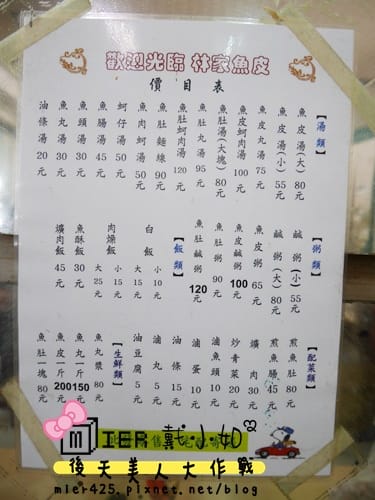 歡迎光臨 林家魚皮
價目表
【湯類】
魚皮湯(大) 80元
魚皮湯(小) 55元
魚皮丸湯 75元
魚皮蚵肉湯 100元
魚肚湯(大塊) 80元
魚肚丸湯 95元
魚肚蚵肉湯 120元
魚肚麵線 90元
魚肉蚵湯 50元
蚵仔湯 50元
魚腸湯 45元
魚頭湯 30元
魚丸湯 30元
油條湯 20元
【粥類】
鹹粥(小) 55元
鹹粥(大) 80元
魚皮粥 65元
魚皮鹹粥 100元
魚肚粥 90元
魚肚鹹粥 120元
【飯類】
白飯 小10元 大15元
肉燥飯 小15元 大25元
魚酥飯 30元
爌肉飯 45元
【配菜類】
煎魚肚 80元
煎魚腸 45元
爌肉 30元
炒青菜 20元
滷魚頭 10元
滷蛋 10元
油條 15元
滷丸 5元
油豆腐 5元
【生鮮類】
魚丸漿 80元
魚丸一斤 150元
魚皮一斤 200元
魚肚一塊 80元
MIER 戴·小·如
後天美人大作戰
mier425.pixnet.net/blog